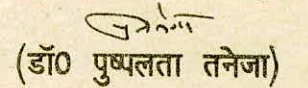 (डॉ0 पुष्पलता तनेजा)